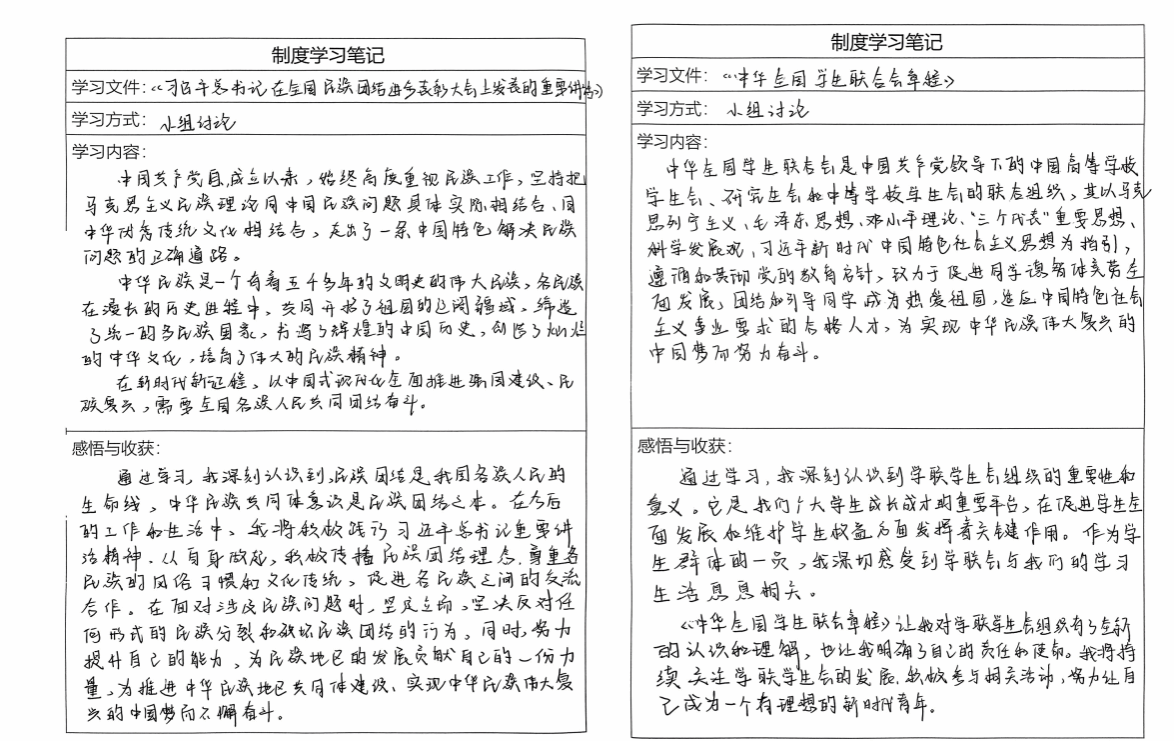 制度学习笔记
学习文件：《习近平总书记在全国民族团结进步表彰大会上发表的重要讲话》
学习方式：小组讨论
学习内容：
中国共产党自成立以来，始终高度重视民族工作，坚持把
马克思主义民族理论同中国民族问题具体实际相结合、同
中华优秀传统文化相结合，走出了一条中国特色解决民族
问题的正确道路。
中华民族是一个有着五千多年的文明史的伟大民族，各民族
在漫长的历史进程中，共同开拓了祖国的辽阔疆域，缔造
了统一的多民族国家，书写了辉煌的中国历史，创造了灿烂
的中华文化，培育了伟大的民族精神。
在新时代新征程，以中国式现代化全面推进强国建设、民
族复兴，需要全国各族人民共同团结奋斗。
感悟与收获：
通过学习，我深刻认识到，民族团结是我国各族人民的
生命线，中华民族共同体意识是民族团结之本。在今后
的工作和生活中，我将积极践行习近平总书记重要讲
话精神，从自身做起，积极传播民族团结理念，尊重各
民族的风俗习惯和文化传统，促进各民族之间的交流
合作。在面对涉及民族问题时，坚定立场，坚决反对任
何形式的民族分裂和破坏民族团结的行为。同时，努力
提升自己的能力，为民族地区的发展贡献自己的一份力
量，为推进中华民族地区共同体建设、实现中华民族伟大复
兴的中国梦而不懈奋斗。
制度学习笔记
学习文件：《中华全国学生联合会章程》
学习方式：小组讨论
学习内容：
中华全国学生联合会是中国共产党领导下的中国高等学校
学生会、研究生会和中等学校学生会的联合组织，其以马克
思列宁主义、毛泽东思想、邓小平理论、“三个代表”重要思想、
科学发展观，习近平新时代中国特色社会主义思想为指引，
遵循和贯彻党的教育方针，致力于促进同学德智体美劳全
面发展，团结和引导同学成为热爱祖国，适应中国特色社会
主义事业要求的合格人才，为实现中华民族伟大复兴的
中国梦而努力奋斗。
感悟与收获：
通过学习，我深刻认识到学联学生会组织的重要性和
意义。它是我们广大学生成长成才的重要平台，在促进学生全
面发展和维护学生权益方面发挥着关键作用。作为学
生群体的一员，我深切感受到学联会与我们的学习
生活息息相关。
《中华全国学生联合会章程》让我对学联学生会组织有了全新
的认识和理解，也让我明确了自己的责任和使命。我将持
续关注学联学生会的发展，积极参与相关活动，努力让自
己成为一个有理想的新时代青年。